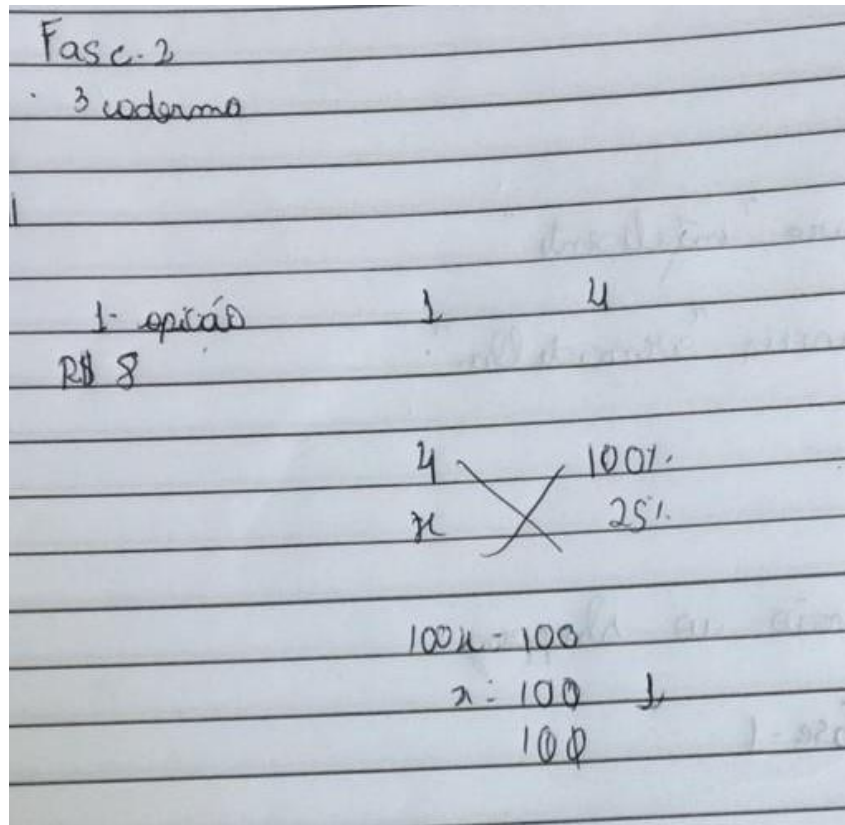 Fase-2
3 caderno
1- opição 1 4
R$ 8
4 100%
x 25%
100x = 100
x = 100 1
100